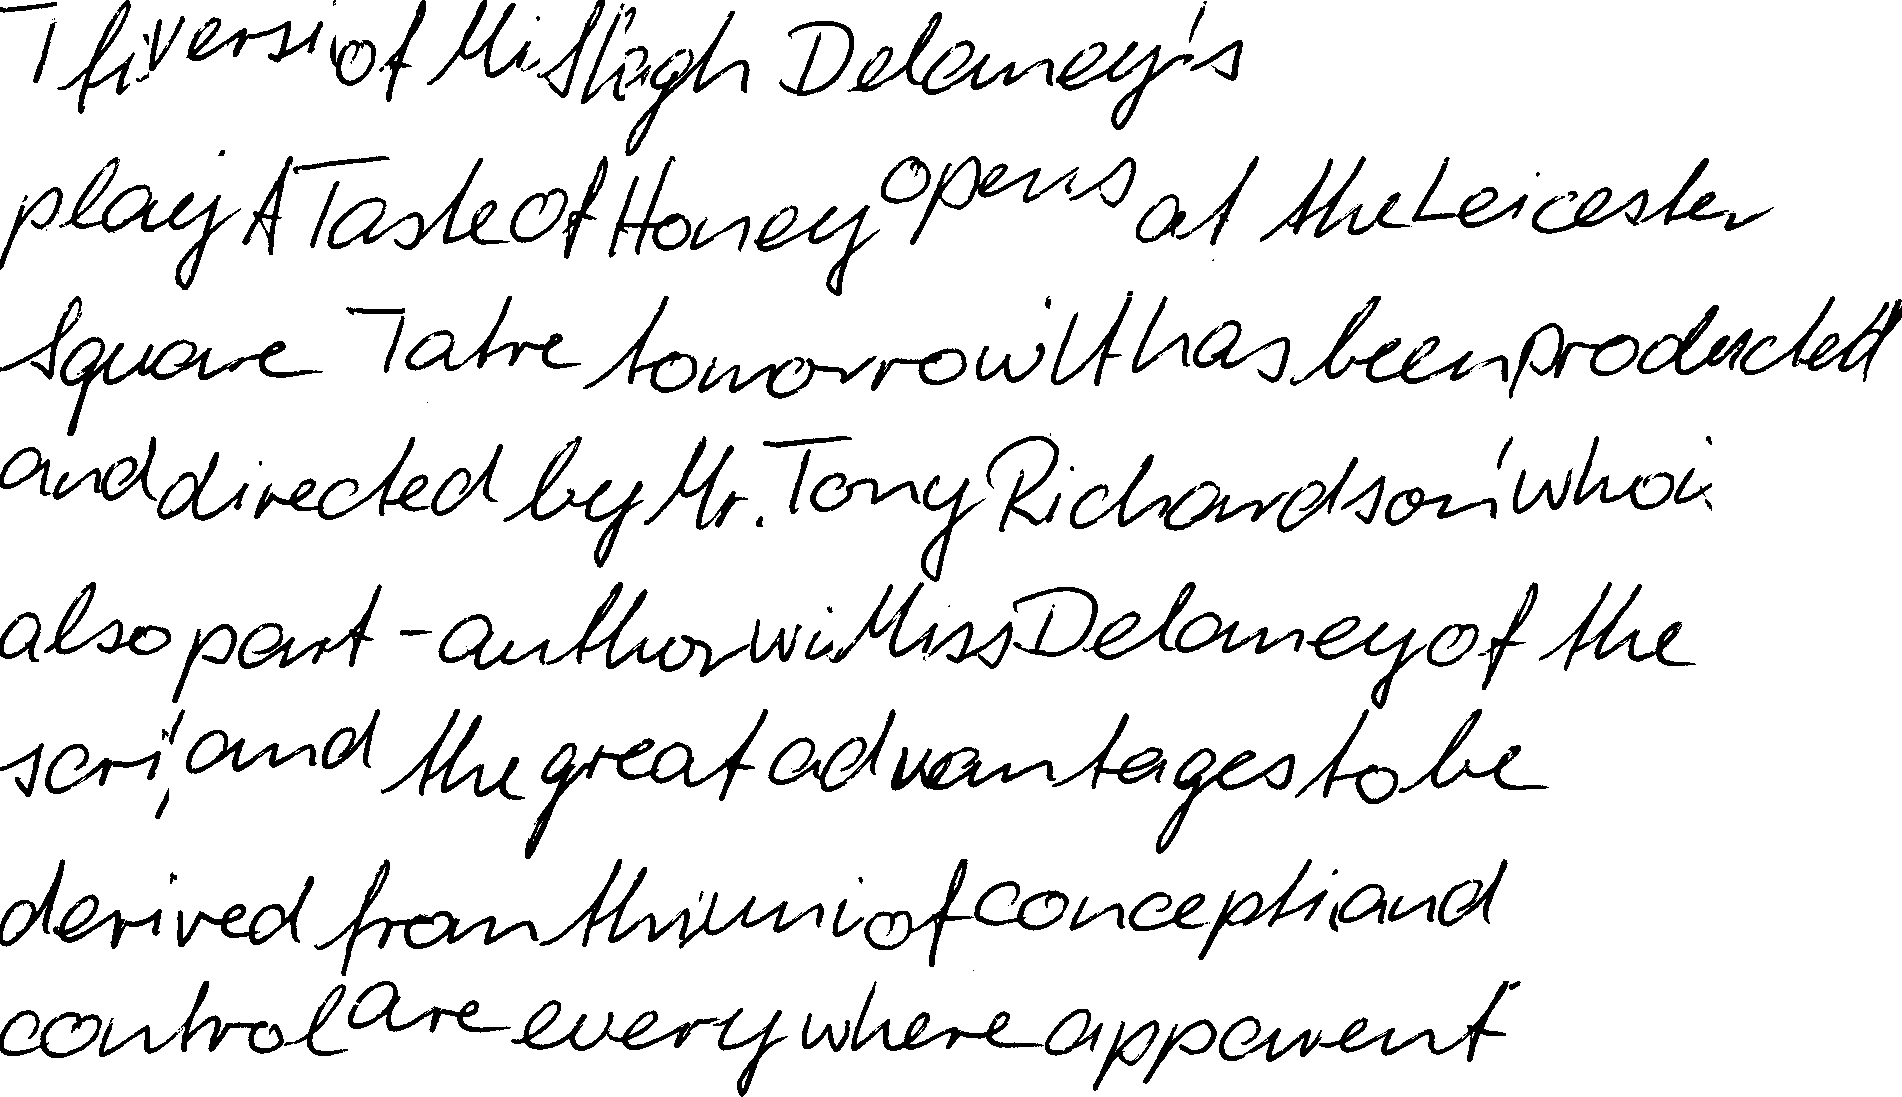 T fi versi of Mi Slagh Delaney's
play A Taste Of Honey opens at the Leicester
Square Tatre tomorrow It has been producted
and directed by Mr. Tony Richardson' who i
also part - author wi Miss Delaney of the
scri, and the great advantages to be
derived from thi uni of concepti and
control are everywhere apparent